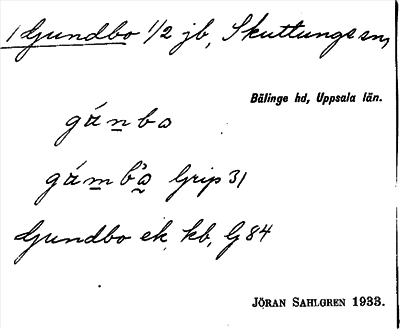 1 Gundbo 1/2 jb, Skuttunge sn,
Bälinge hd, Uppsala län.
gúnbo
gúmbo Grip 31
Gundbo ek. kb, G 84
JÖRAN SAHLGREN 1933.